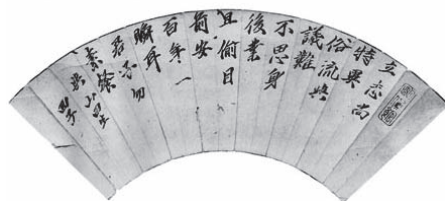 立志尚
特異
俗流與
議難
不思身
後業
且偷目
前安
百年一
瞬耳
君子勿
素餐